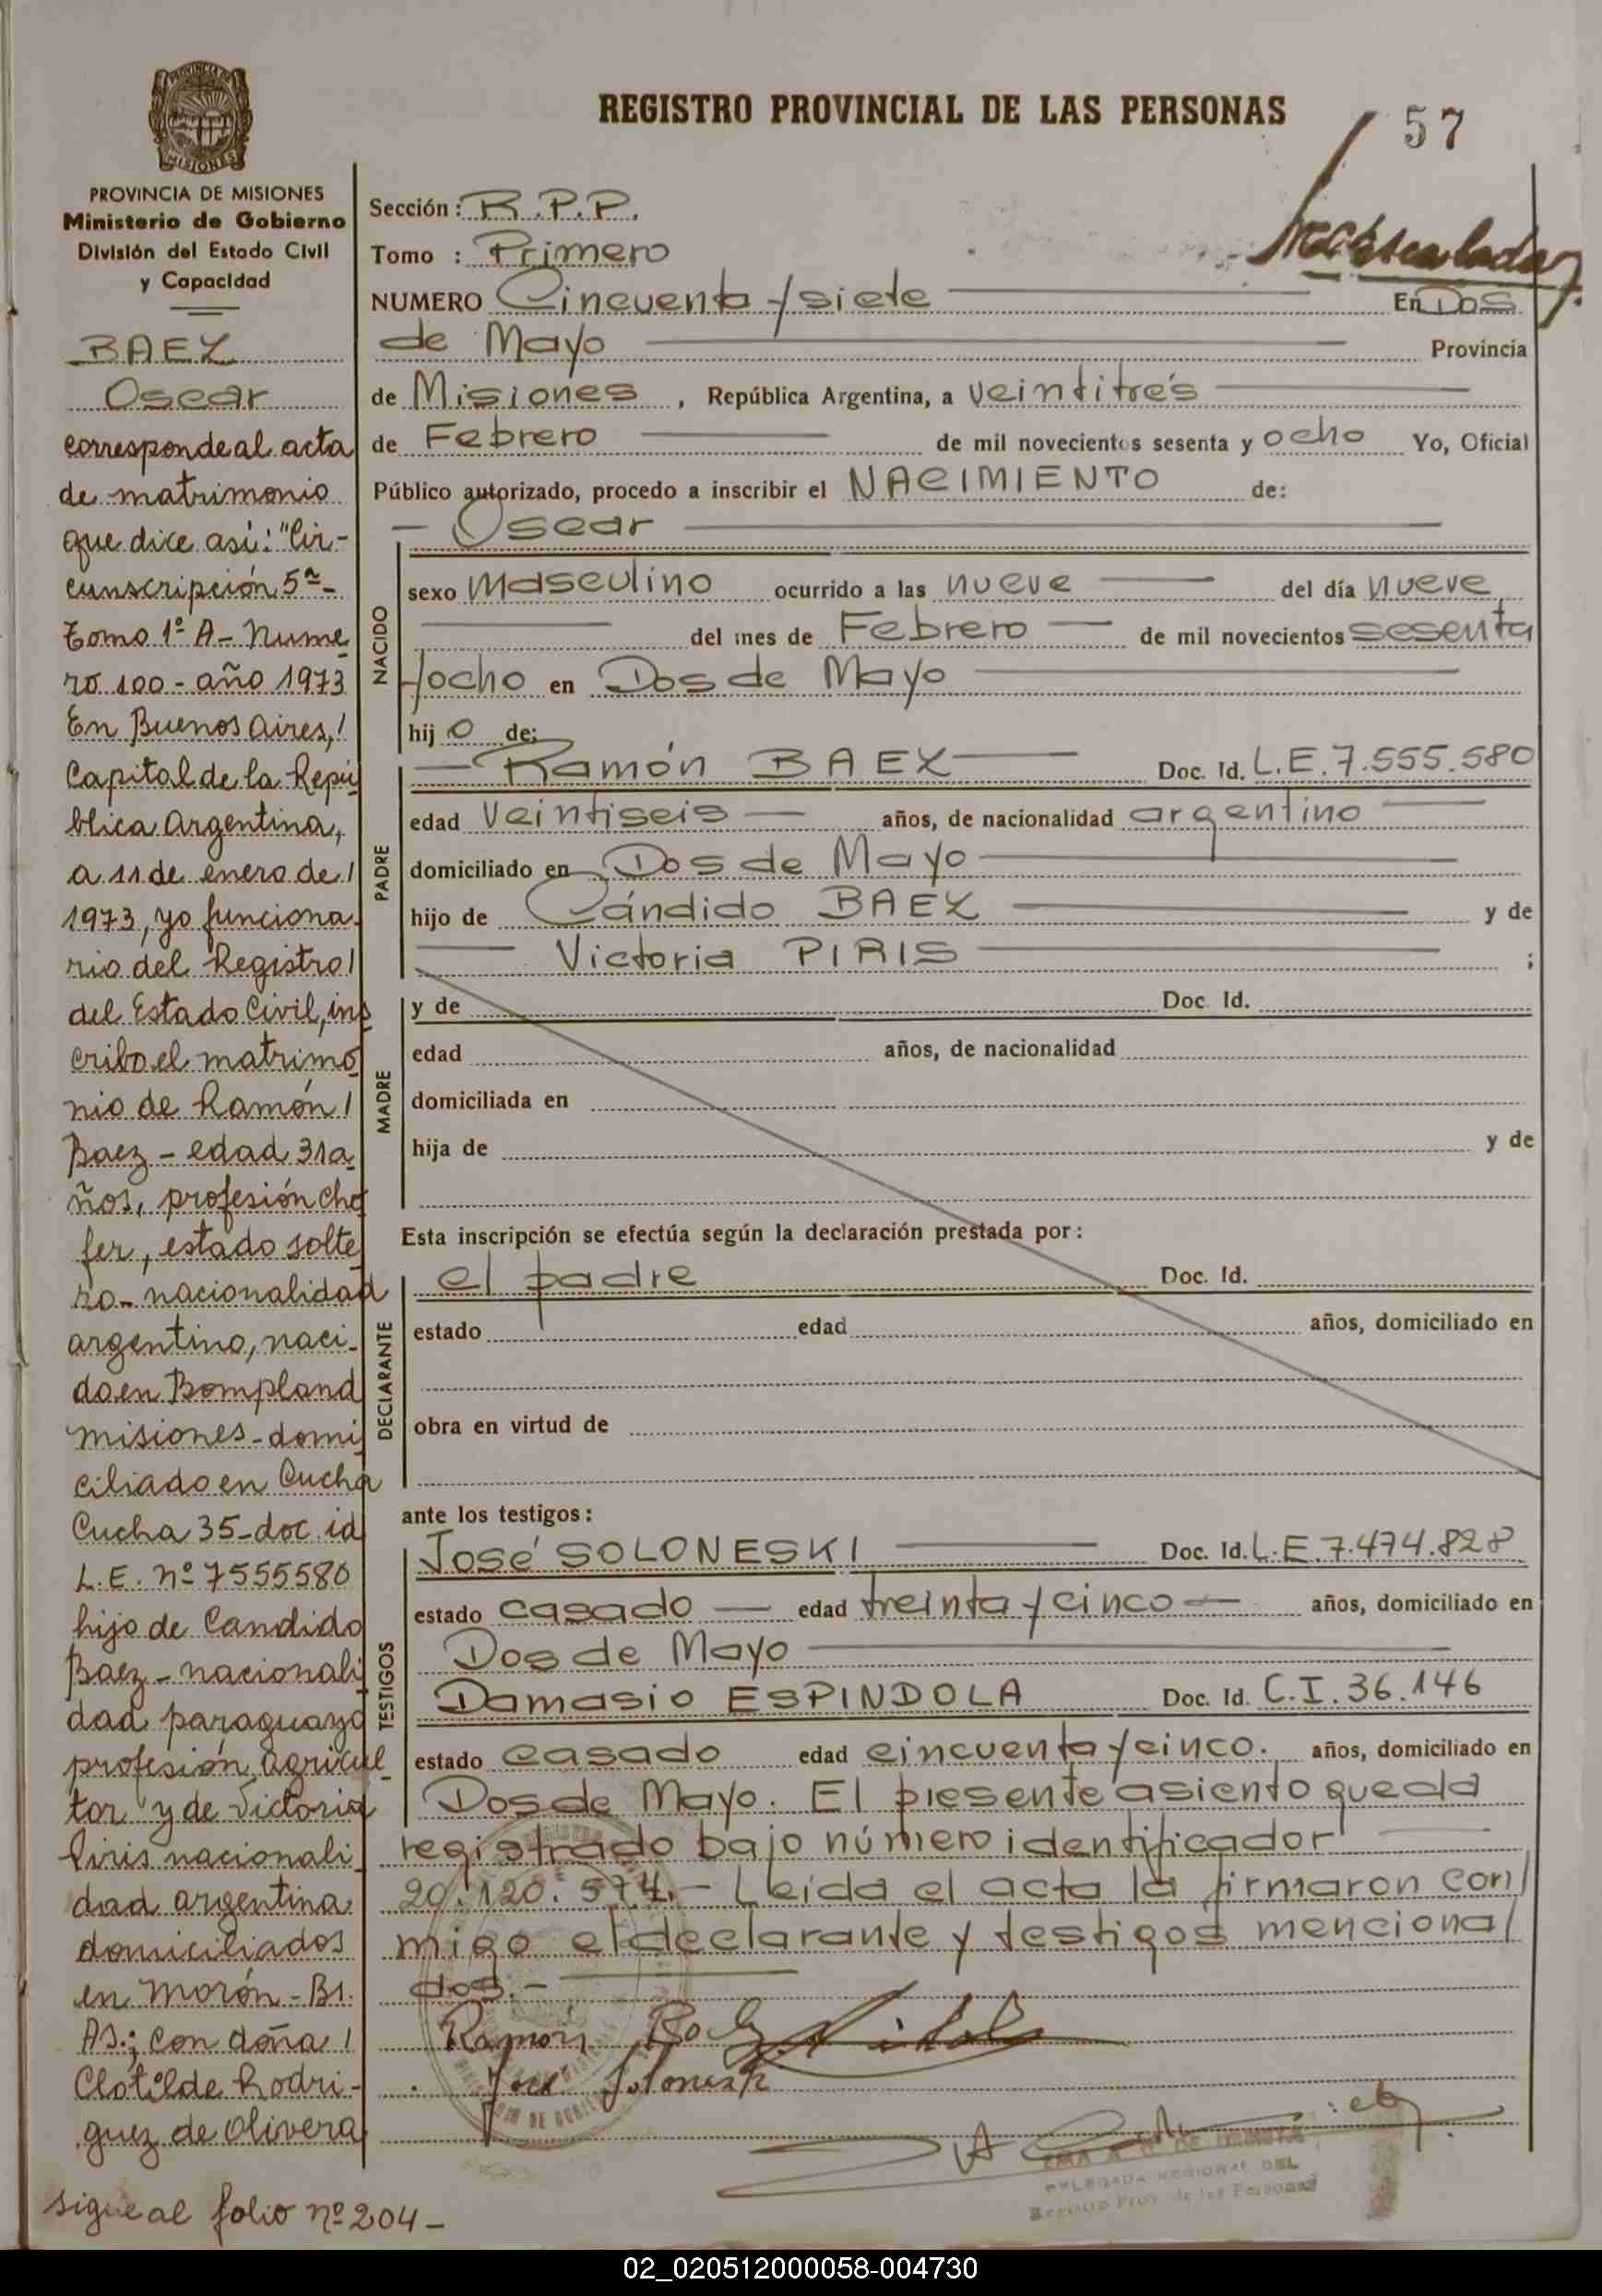 REGISTRO PROVINCIAL DE LAS PERSONAS
57
PROVINCIA DE MISIONES
PROVINCIA DE MISIONES
Ministerio de Gobierno
División del Estado Civil
y Capacidad
BAEZ
Oscar
corresponde al acta
de matrimonio
que dice así: "Cir-
cunscripción 5ª-
Tomo 1º A- Nume
ro 100 - año 1973
En Buenos Aires, /
Capital de la Repú
blica Argentina,
a 11 de enero de /
1973, yo funciona
rio del Registro /
del Estado Civil, ins
cribo el matrimo
nio de Ramón /
Baez - edad 31 a
ños, profesión cho
fer, estado solte
ro - nacionalidad
argentino, naci-
do en Bompland
Misiones - domi
ciliado en Cucha
Cucha 35 - doc. id
L.E. nº 7555580
hijo de Candido
Baez - nacionali
dad paraguayo
profesión agricul
tor y de Victoria
Piris nacionali
dad argentina
domiciliados
en Morón - Bs.
As.; con doña /
Clotilde Rodri-
guez de Olivera
sigue al folio nº 204 -
Sección: R.P.P.
Tomo : Primero
NUMERO Cincuenta y siete En Dos
de Mayo Provincia
de Misiones , República Argentina, a veintitrés
de Febrero de mil novecientos sesenta y ocho Yo, Oficial
Público autorizado, procedo a inscribir el NACIMIENTO de:
- Oscar
NACIDO
sexo masculino ocurrido a las nueve del día nueve
del mes de Febrero de mil novecientos sesenta
y ocho en Dos de Mayo
hij o de:
PADRE
Ramón BAEZ Doc. Id. L.E. 7.555.580
edad veintiseis años, de nacionalidad argentino
domiciliado en Dos de Mayo
hijo de Cándido BAEZ y de
Victoria PIRIS ;
MADRE
y de Doc. Id.
edad años, de nacionalidad
domiciliada en
hija de y de
Esta inscripción se efectúa según la declaración prestada por:
DECLARANTE
el padre Doc. Id.
estado edad años, domiciliado en
obra en virtud de
ante los testigos:
TESTIGOS
José SOLONESKI Doc. Id. L.E. 7.474.828
estado casado edad treinta y cinco años, domiciliado en
Dos de Mayo
Damasio ESPINDOLA Doc. Id. C.I. 36.146
estado casado edad cincuenta y cinco. años, domiciliado en
Dos de Mayo. El presente asiento queda
registrado bajo número identificador
20.120.574.- Leída el acta la firmaron con/
migo el declarante y testigos menciona/
dos.-
Ramón Baez
José Soloneski
DELEGADA REGIONAL DEL
Registro Prov. de las Personas
02_020512000058-004730